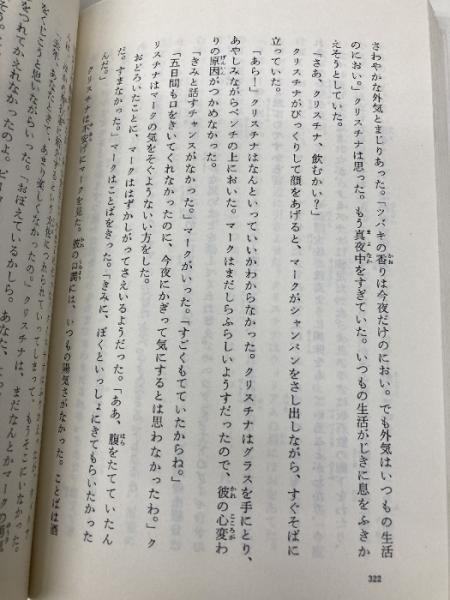 さわやかな外気とまじりあった。「ツバキの香りは今夜だけのにおい。でも外気はいつもの生活
のにおい。」クリスチナは思った。もう真夜中をすぎていた。いつもの生活がじきに息をふきか
えそうとしていた。
「さあ、クリスチナ、飲むかい?」
クリスチナがびっくりして顔をあげると、マークがシャンパンをさし出しながら、すぐそばに
立っていた。
「あら!」クリスチナはなんといっていいかわからなかった。クリスチナはグラスを手にとり、
あやしみながらベンチの上においた。マークはまだしらふらしいようすだったので、彼の心変わ
りの原因がつかめなかった。
「きみと話すチャンスがなかった。」マークがいった。「すごくもてていたからね。」
「五日間も口をきいてくれなかったのに、今夜にかぎって気にするとは思わなかったわ。」ク
リスチナはマークの気をそぐようないい方をした。
おどろいたことに、マークははずかしがってさえいるようだった。「ああ、腹をたてていたん
だ。すまなかった。」マークはことばをきった。「きみに、ぼくといっしょにきてもらいたかった
んだ。」
クリスチナは不安げにマークを見た。彼の口調には、いつもの陽気さがなかった。ことばは酒
322